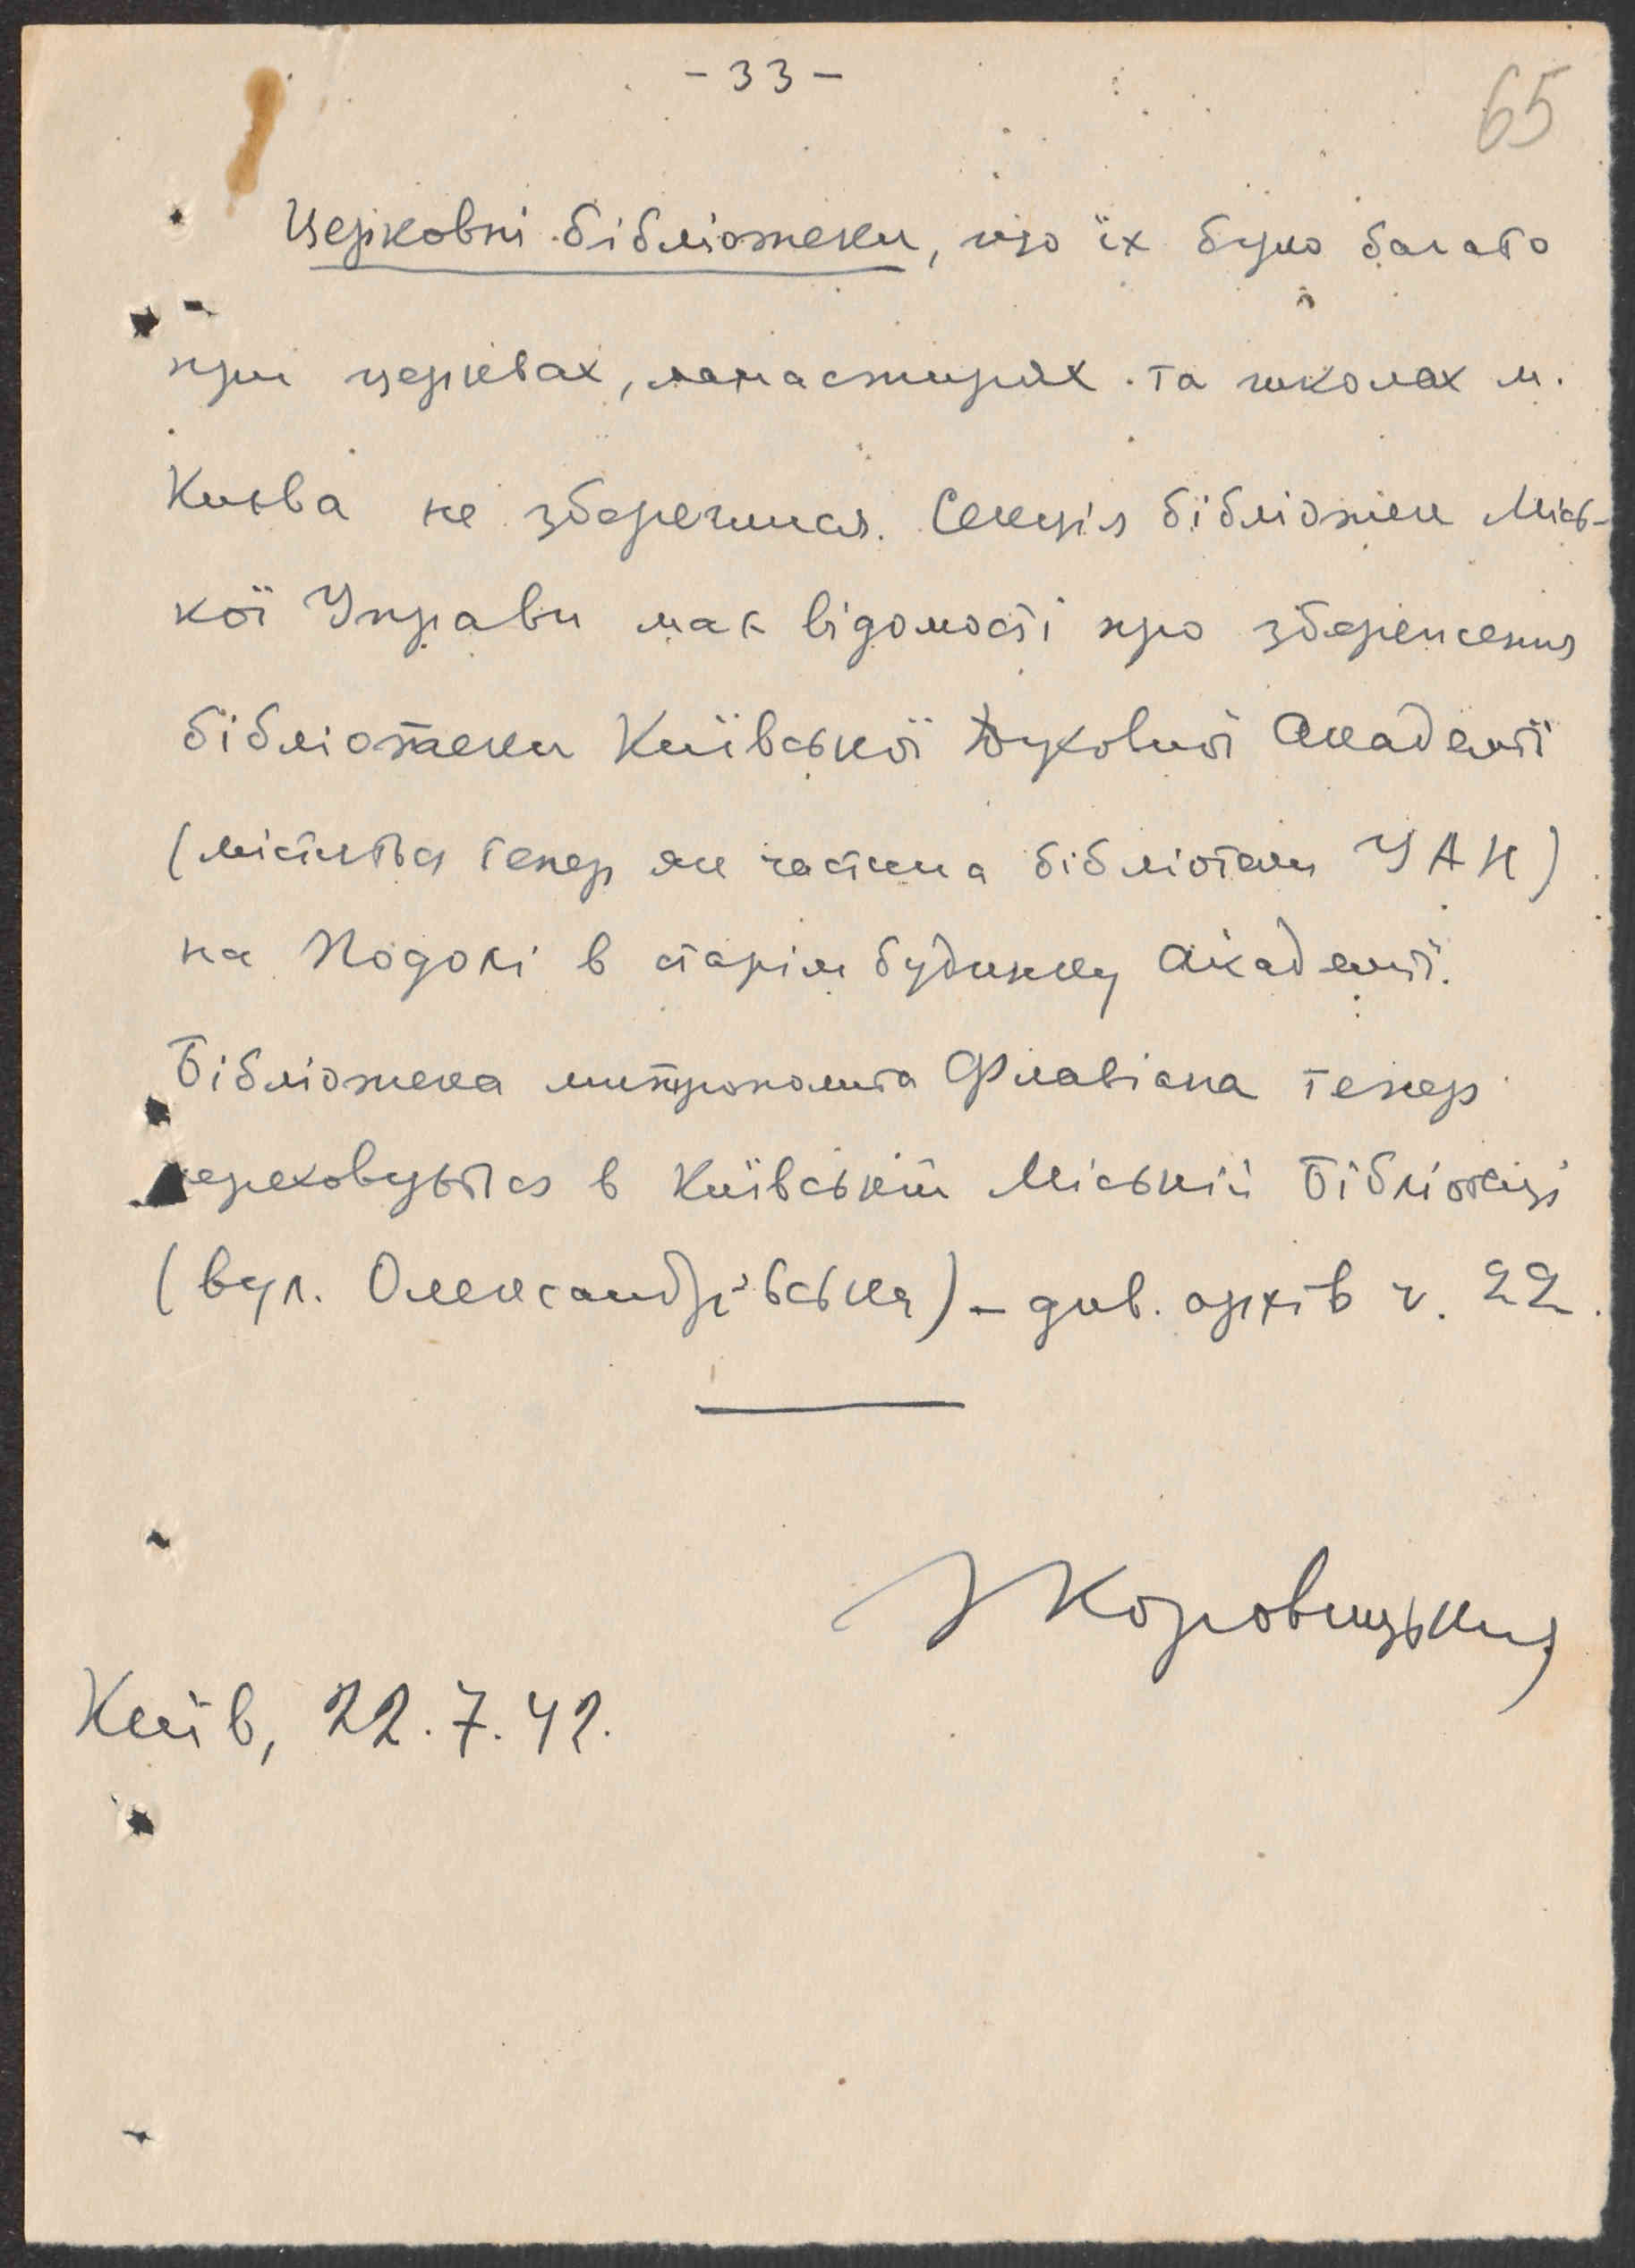 - 33 -
65
Церковні бібліотеки, що їх було багато
при церквах, манастирях та школах м.
Києва не збереглися. Секція бібліотек Місь-
кої Управи має відомості про збереження
бібліотеки Київської Духовної Академії
(міститься тепер як частина бібліотеки УАН)
на Подолі в старім будинку Академії.
Бібліотека митрополита Флавіана тепер
переховується в Київській Міській Бібліотеці
(вул. Олександрівська) – див. архів ч. 22.
Коровицький
Київ, 22.7.42.